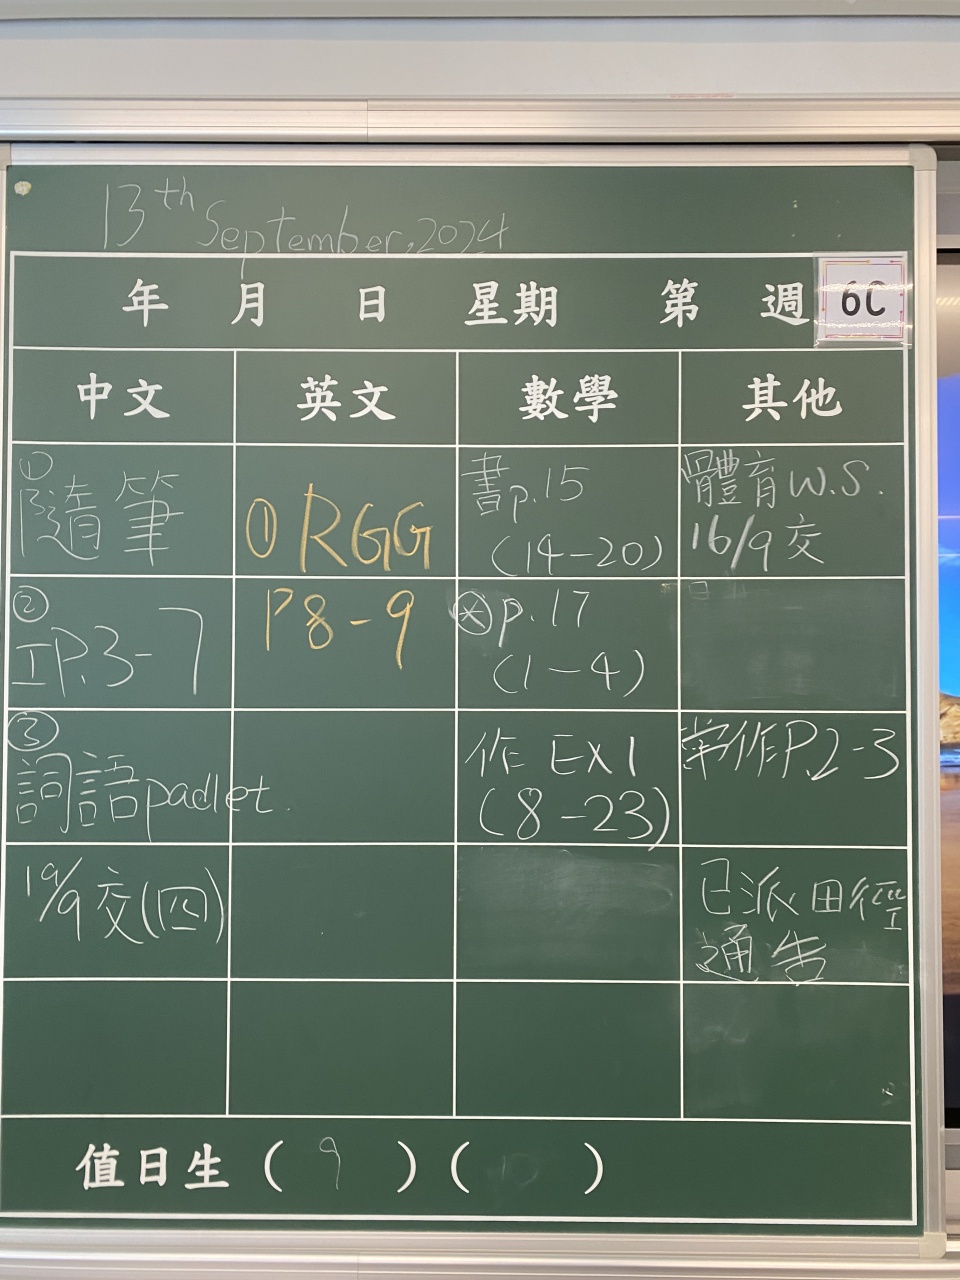 13th September, 2024
年 月 日 星期 第 週 6C
中文 英文 數學 其他
①
隨筆
②
工P.3-7
③
詞語padlet.
19/9交(四)
① RGG
P8-9
書p.15
(14-20)
⊛p.17
(1-4)
作 EX1
(8-23)
體育W.S.
16/9交
常作P.2-3
已派田徑
通告
值日生 ( 9 ) ( )